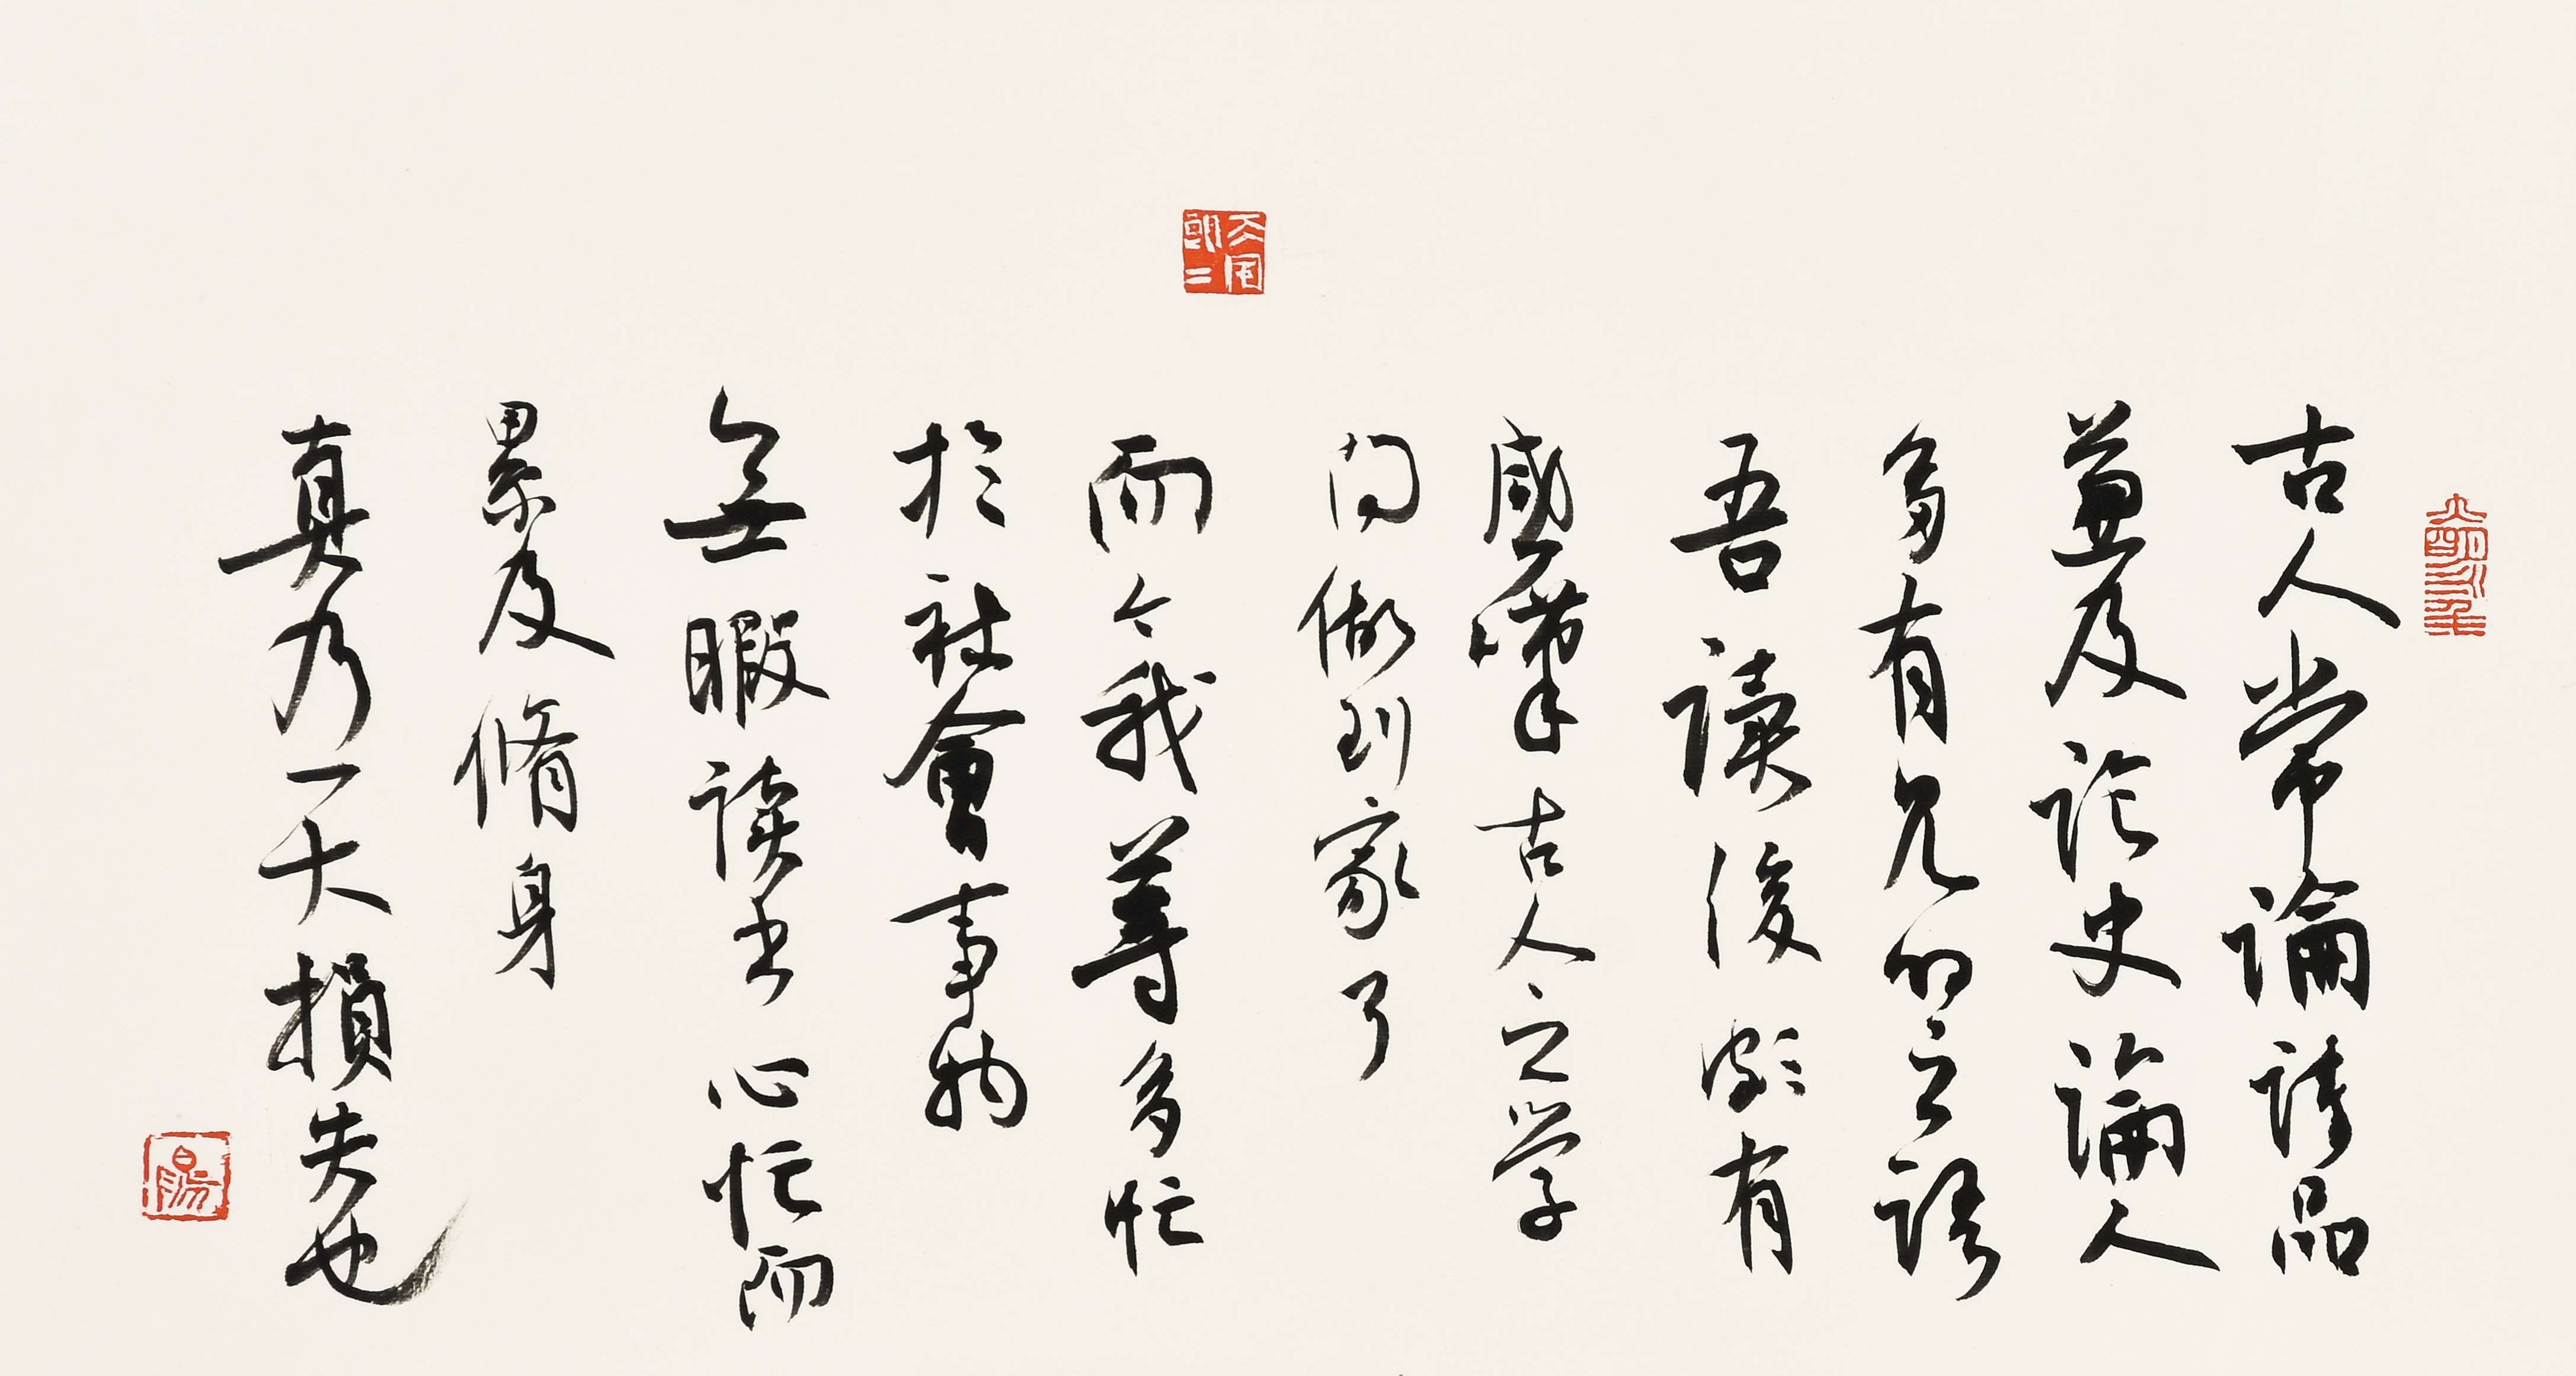 古人常論詩品
兼及論史論人
多有見的之語
吾讀後頗有
感嘆古人之学
问做到家了
而今我等多忙
於社會事物
無暇读书心忙而
累及脩身
真乃一大損失也